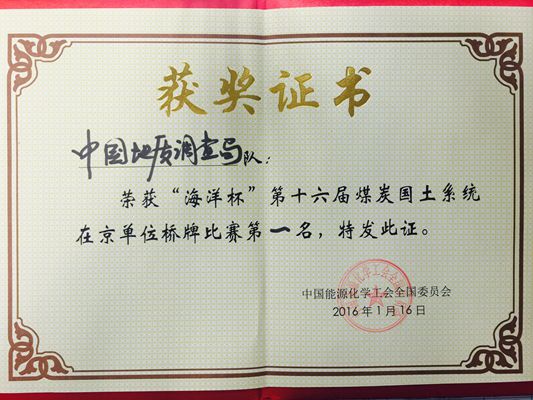 获奖证书
中国地质调查局队：
荣获“海洋杯”第十六届煤炭国土系统
在京单位桥牌比赛第一名，特发此证。
中国能源化学工会全国委员会
2016年1月16日